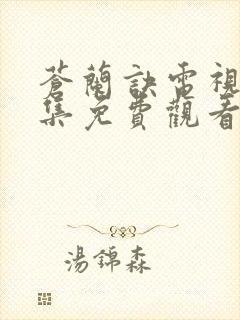 蒼蘭訣電視
集免費觀看
湯錦森